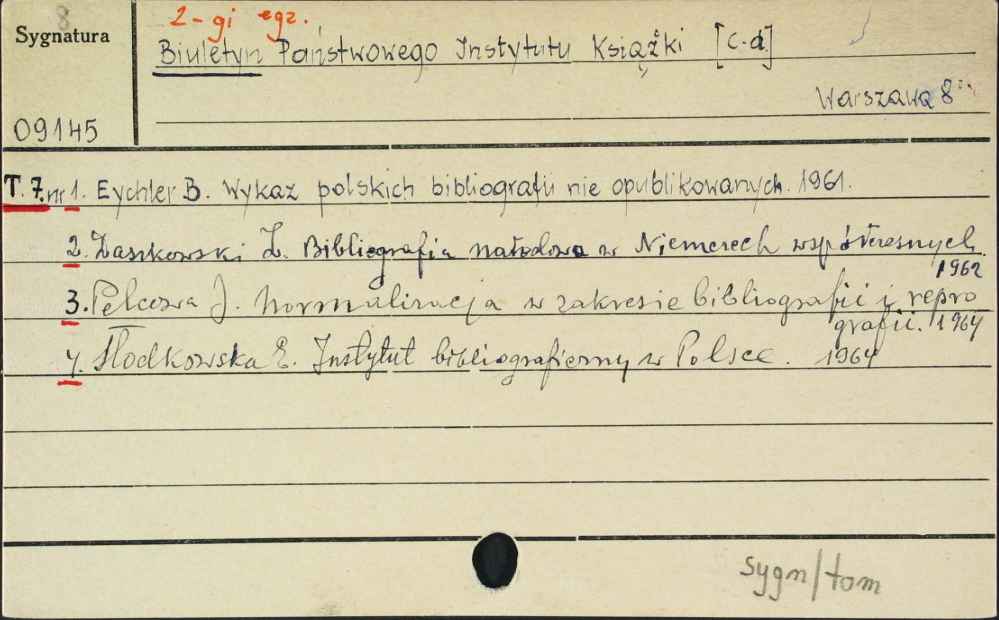 8.
2-gi egz.
Sygnatura
Biuletyn Państwowego Instytutu Książki [c.d]
Warszawa 8°
09145
T. 7. nr 1. Eychler B. Wykaz polskich bibliografii nie opublikowanych. 1961.
2. Daszkowski Z. Bibliografia narodowa w Niemczech współczesnych.
1962
3. Pelcowa J. Normalizacja w zakresie bibliografii i repro
grafii. 1964
4. Słodkowska E. Instytut bibliograficzny w Polsce. 1964
sygn/tom